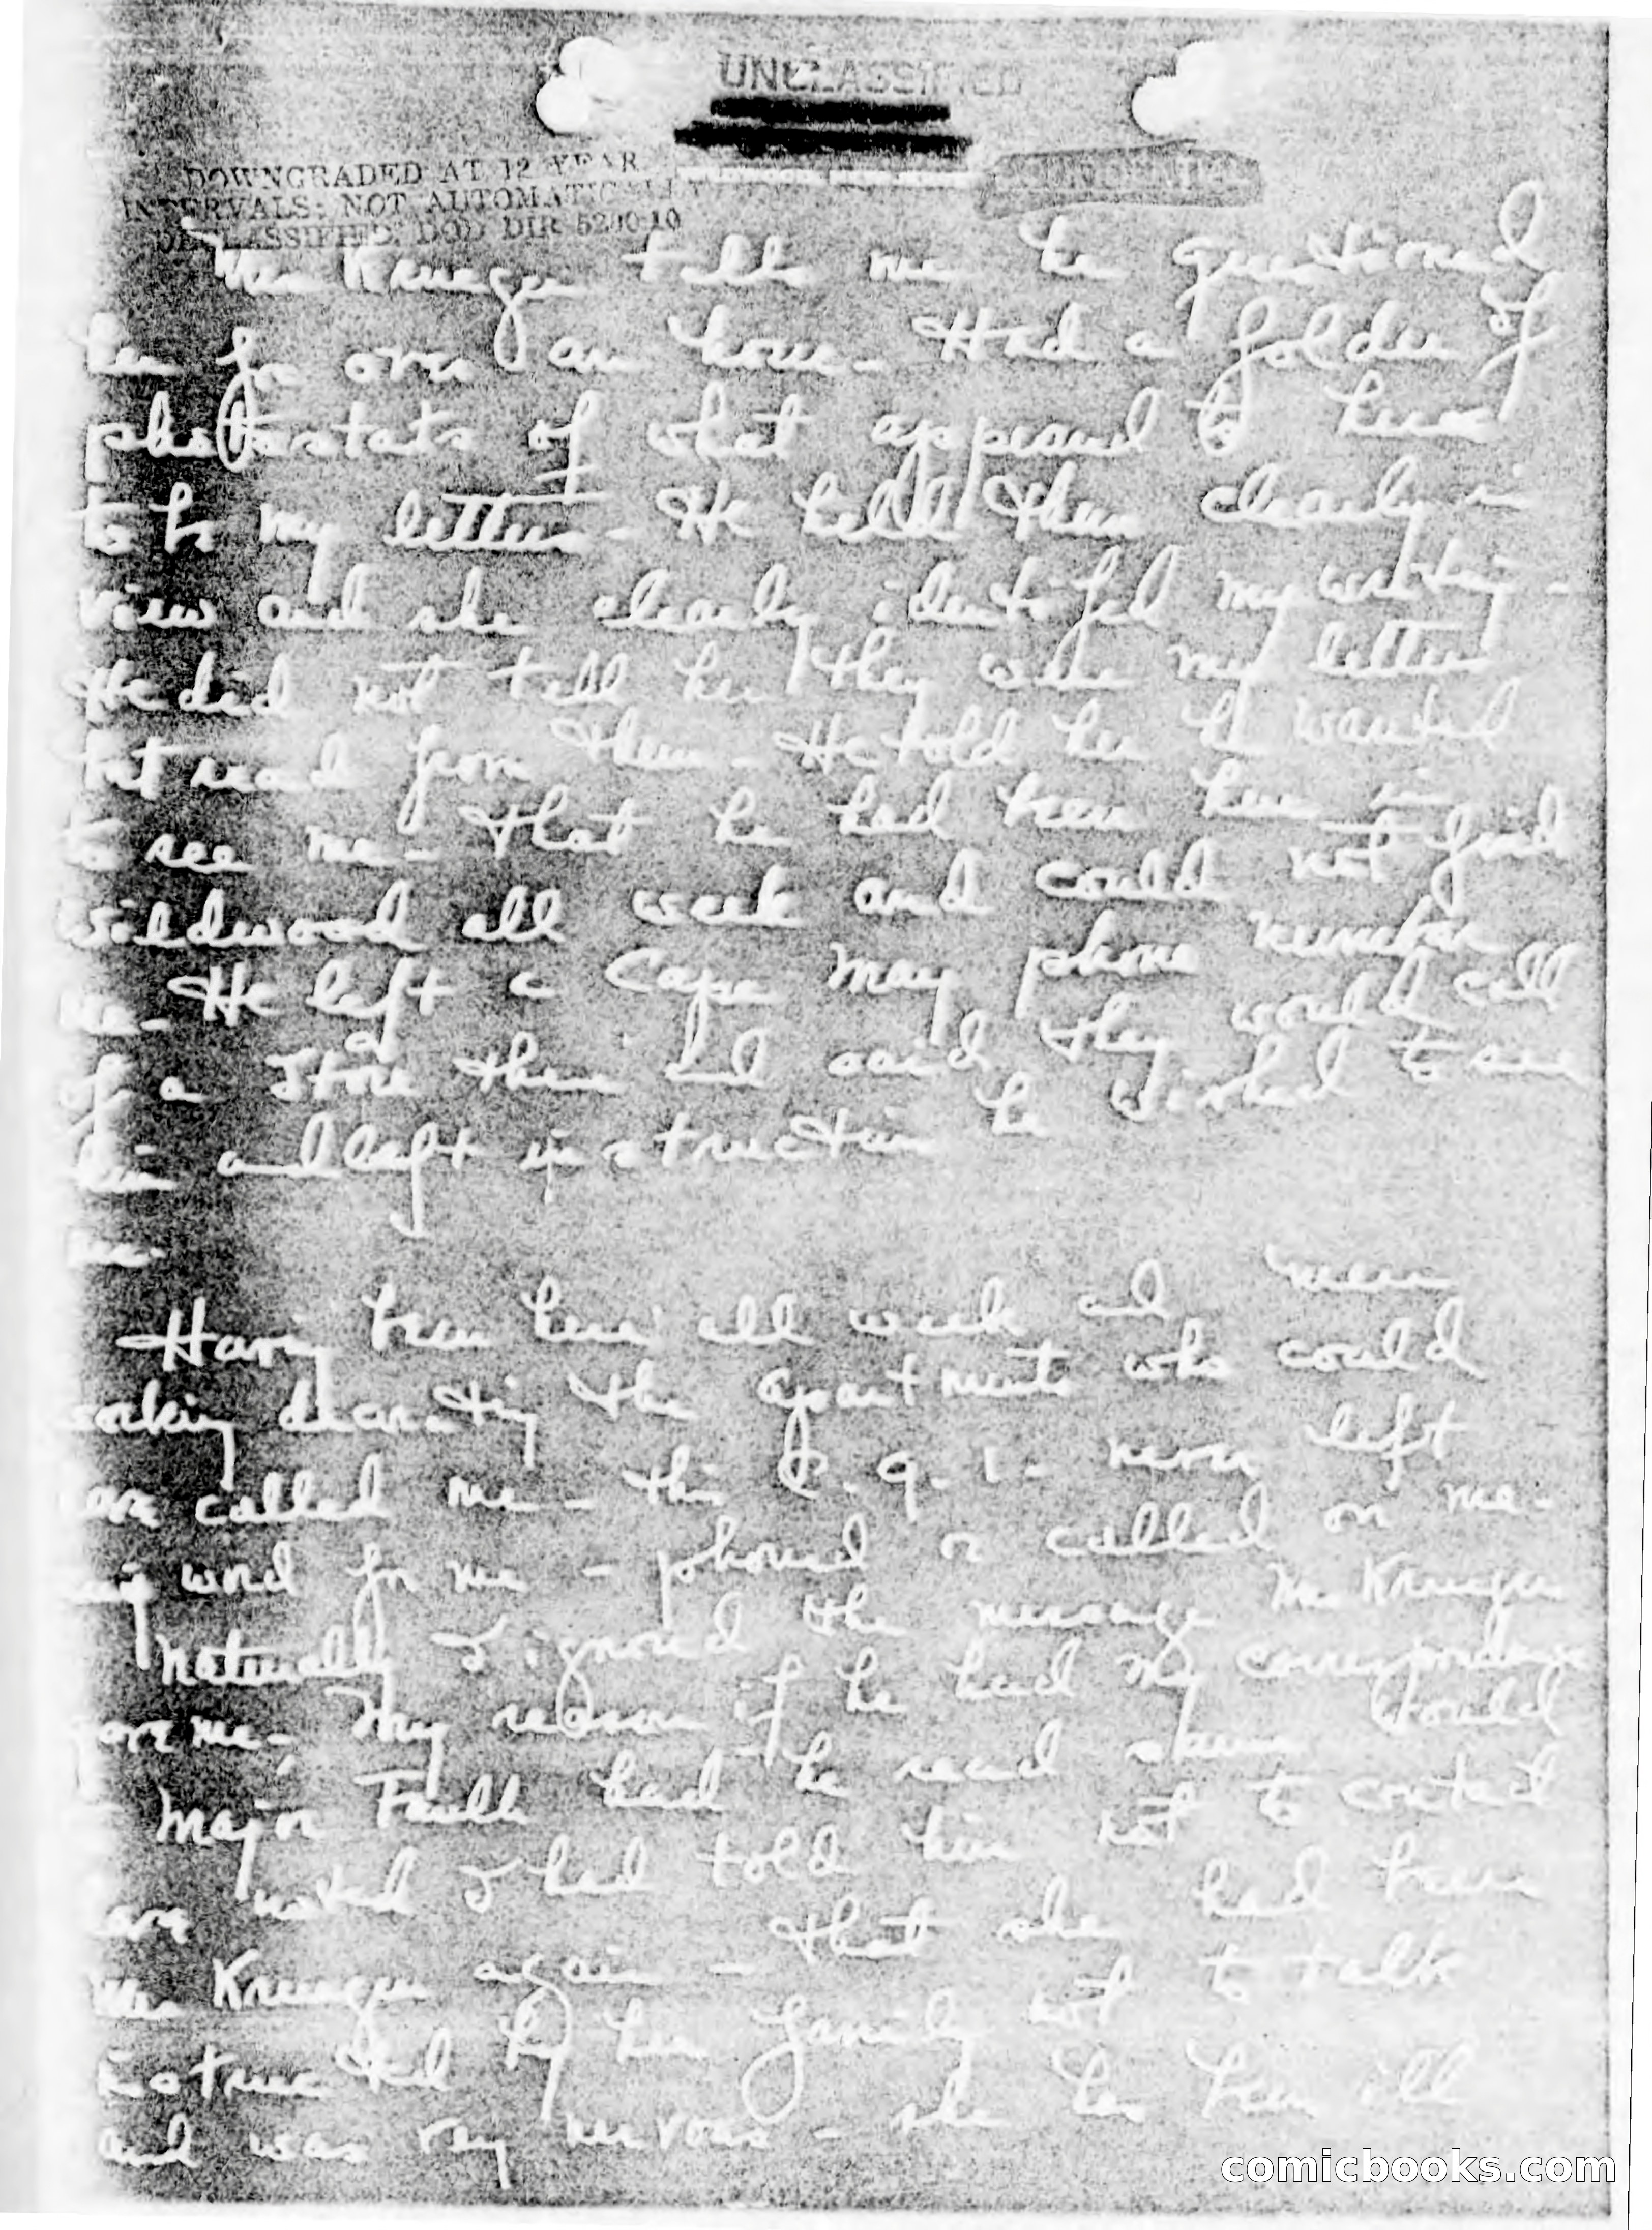 UNCLASSIFIED
DOWNGRADED AT 12 YEAR
INTERVALS; NOT AUTOMATICALLY
DECLASSIFIED. DOD DIR 5200.10
Mrs Krueger tells me he questioned
her for over an hour - Had a folder of
photostats of what appeared to her
to be my letters - He held them clearly in
view and she clearly identified my writing -
He did not tell her they were my letters
but read from them - He told her he wanted
to see me - that he had been here in
Wildwood all week and could not find
me - He left a Cape May phone number
of a store there and said they would call
him and left instruction he wished to see
me -
Having been here all week and men
working decorating the apartments who could
have called me - this C. I. never left
any word for me - phoned or called on me -
Naturally I ignored the message Mrs Krueger
gave me - My reason if he had my correspondence
Major Faulk had he read same would
have noted I had told him not to contact
Mrs Krueger again - that she had been
instructed by her family not to talk
and was very nervous - she has been ill
comicbooks.com